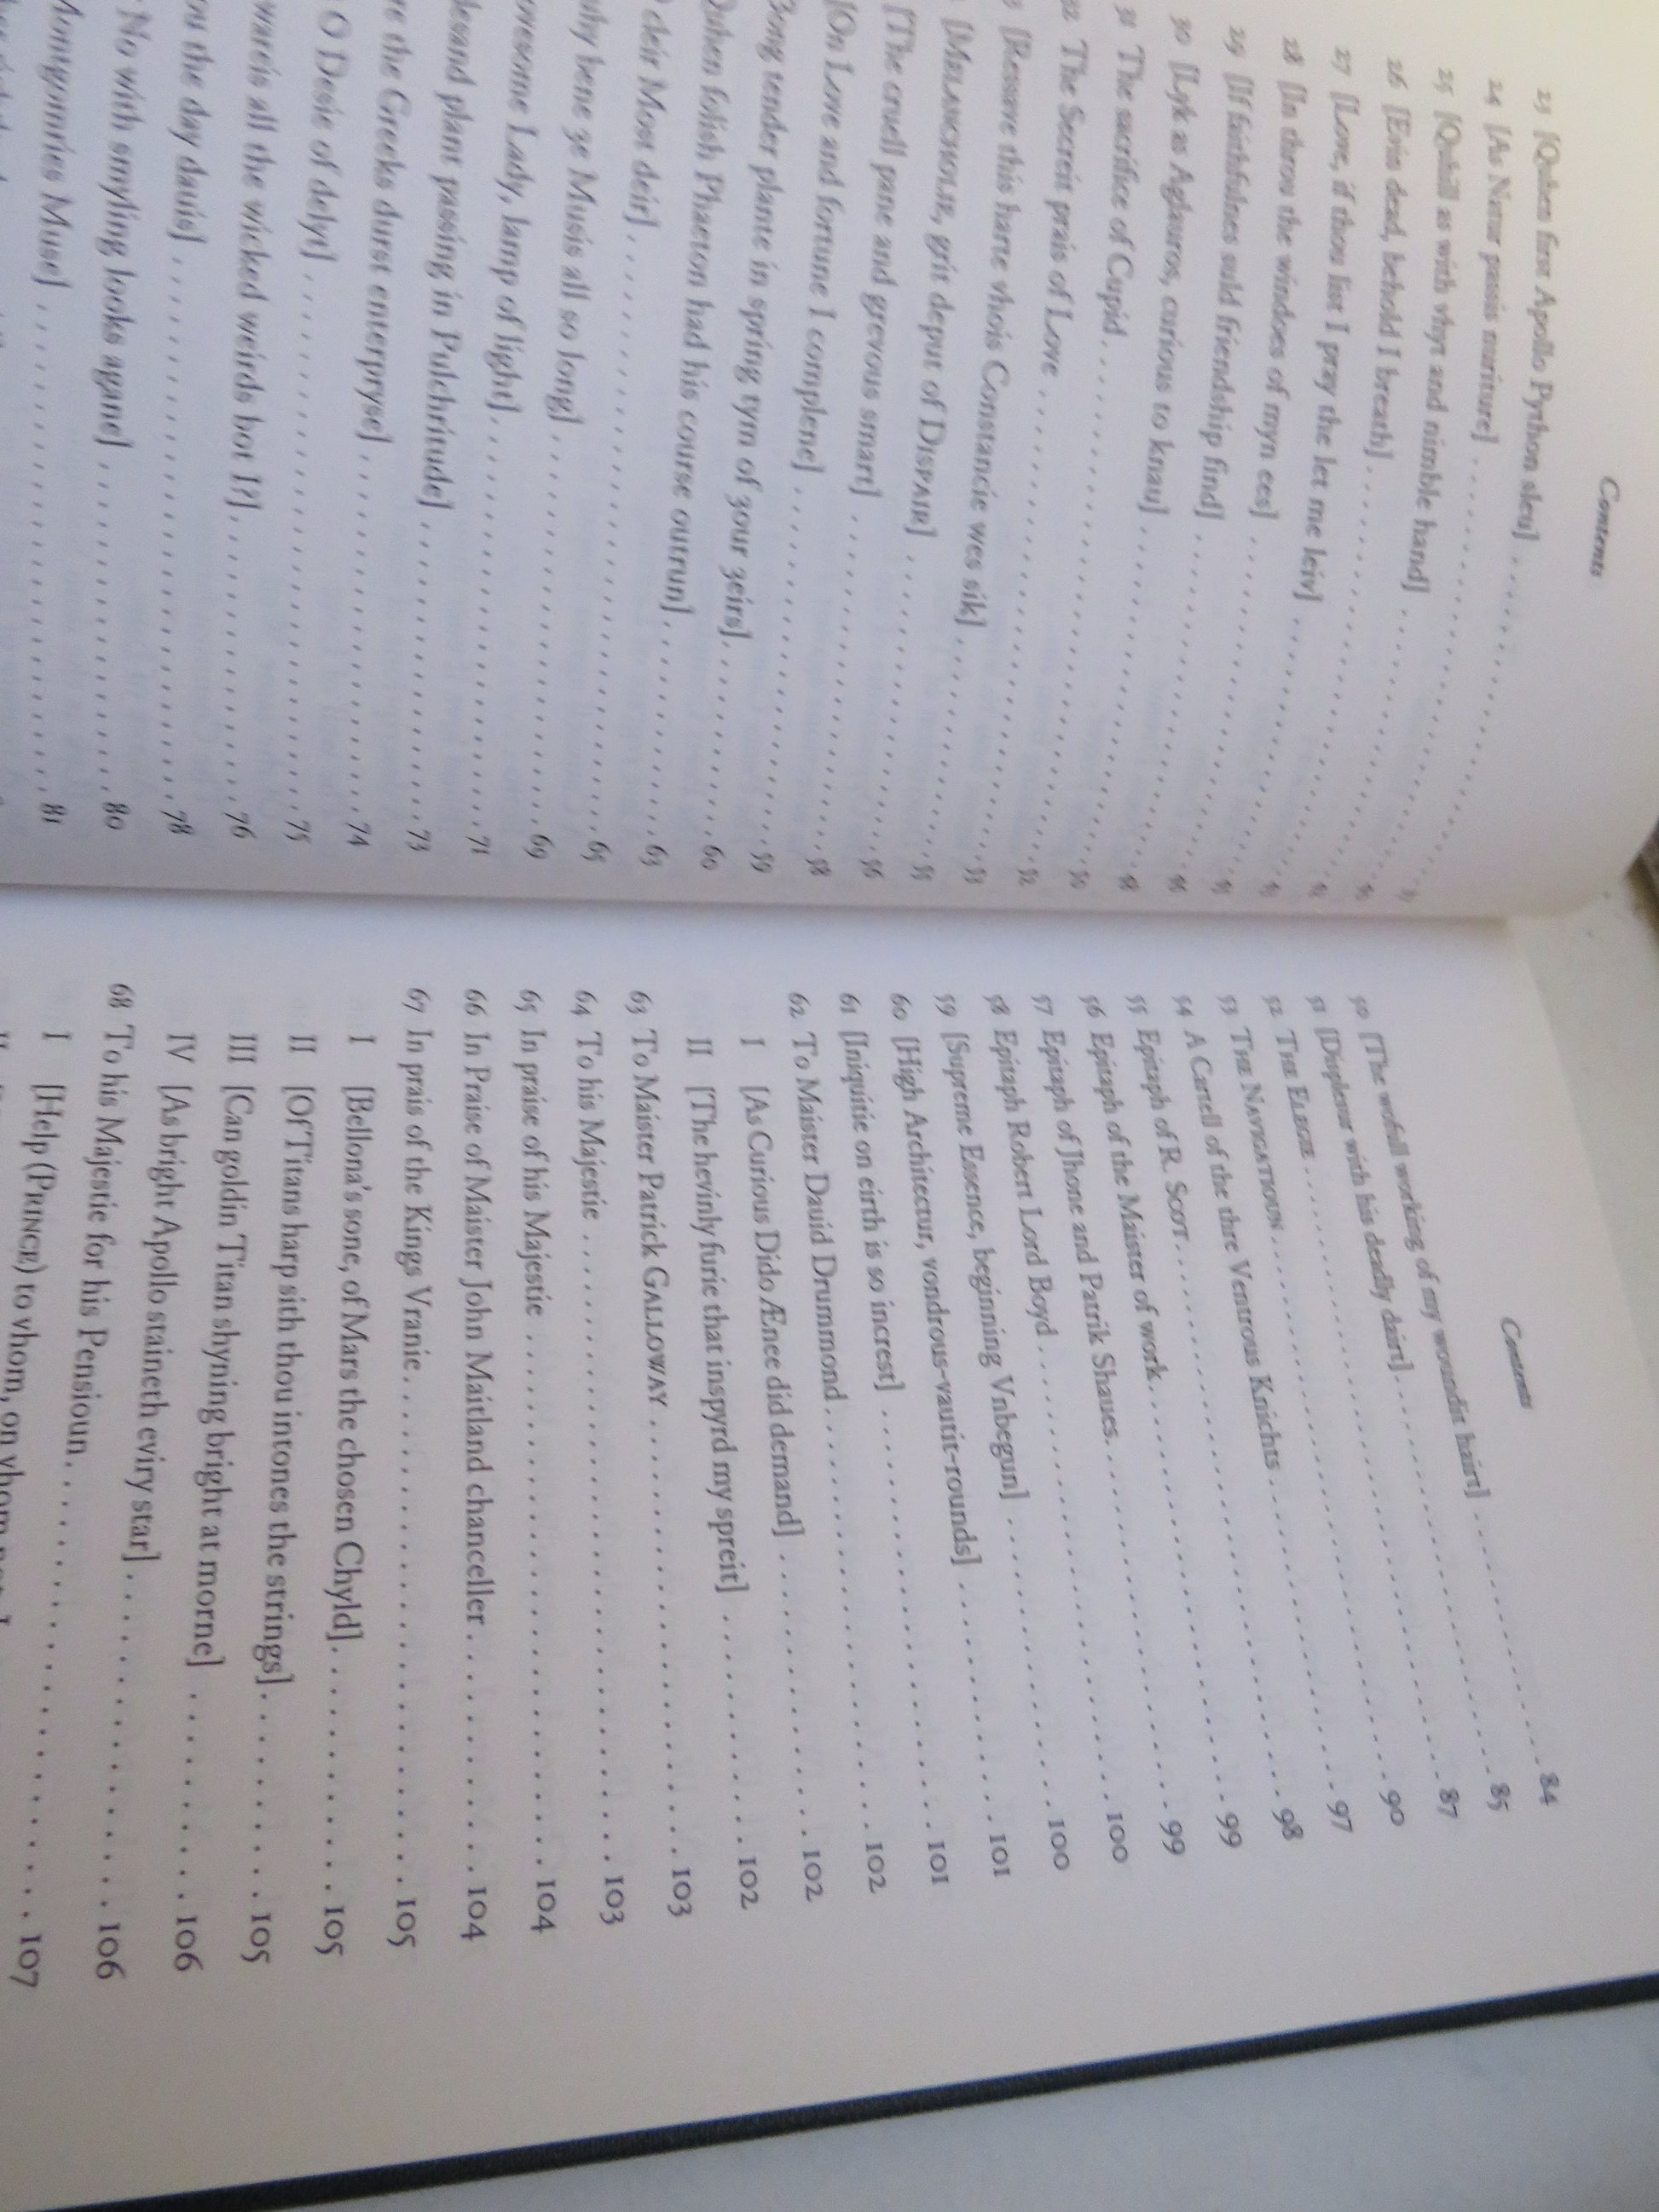 Contents
23 [Quhen first Apollo Python sleu]
24 [As Natur passis nuriture]
25 [Quhill as with vhyt and nimble hand]
26 [Evin dead, behold I breath]
27 [Love, if thou list I pray the let me leiv]
28 [In throu the windoes of myn ees]
29 [If faithfulnes suld friendship find]
30 [Lyk as Aglauros, curious to knau]
31 The sacrifice of Cupid
32 The Secreit prais of Love
[Ressave this harte vhois Constancie wes sik] . . . 52
[MELANCHOLIE, grit deput of DISPAIR] . . . 53
[The cruell pane and grevous smart] . . . 55
[On Love and fortune I complene] . . . 56
3ong tender plante in spring tym of 3our 3eirs] . . . 58
Quhen folish Phaeton had his course outrun] . . . 59
deir Most deir] . . . 60
why bene 3e Musis all so long] . . . 63
ovesome Lady, lamp of light] . . . 65
lesand plant passing in Pulchritude] . . . 69
re the Greeks durst enterpryse] . . . 71
O Desie of delyt] . . . 73
wareis all the wicked weirds bot I?] . . . 74
ou the day dauis] . . . 75
No with smyling looks agane] . . . 76
Montgomries Muse] . . . 78
80
81
Contents
50 [The wofull working of my woundit hairt] . . . 84
51 [Displesur with his deadly dairt] . . . 85
52 THE ELEGIE . . . 87
53 THE NAVIGATIOUN . . . 90
54 A Cartell of the thre Ventrous Knichts . . . 97
55 Epitaph of R. SCOT . . . 98
56 Epitaph of the Maister of work . . . 99
57 Epitaph of Jhone and Patrik Shaues . . . 99
58 Epitaph Robert Lord Boyd . . . 100
59 [Supreme Essence, beginning Vnbegun] . . . 100
60 [High Architectur, vondrous-vautit-rounds] . . . 101
61 [Iniquitie on eirth is so increst] . . . 101
62 To Maister Dauid Drummond . . . 102
I [As Curious Dido Ænee did demand] . . . 102
II [The hevinly furie that inspyrd my spreit] . . . 102
63 To Maister Patrick GALLOWAY . . . 103
64 To his Majestie . . . 103
65 In praise of his Majestie . . . 104
66 In Praise of Maister John Maitland chanceller . . . 104
67 In prais of the Kings Vranie . . . 105
I [Bellona's sone, of Mars the chosen Chyld] . . . 105
II [Of Titans harp sith thou intones the strings] . . . 105
III [Can goldin Titan shyning bright at morne] . . . 106
IV [As bright Apollo staineth eviry star] . . . 106
68 To his Majestie for his Pensioun . . . 107
I [Help (PRINCE) to vhom, on vhom